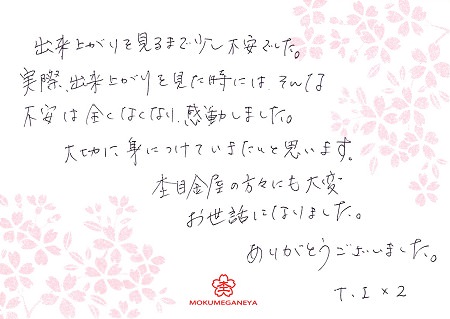 出来上がりを見るまで少し不安でした。
実際、出来上がりを見た時には、そんな
不安は全くなくなり、感動しました。
大切に身につけていきたいと思います。
杢目金屋の方々にも大変
お世話になりました。
ありがとうございました。
T.I×2
杢
MOKUMEGANEYA